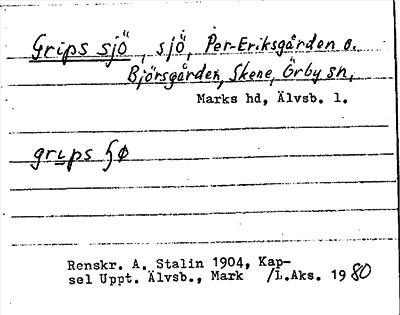 Grips sjö, sjö, Per-Eriksgården o.
Björsgården, Skene, Örby sn,
Marks hd, Älvsb. l.
grips ʃø
Renskr. A. Stalin 1904, Kap-
sel Uppt. Älvsb., Mark /L.Aks. 1980